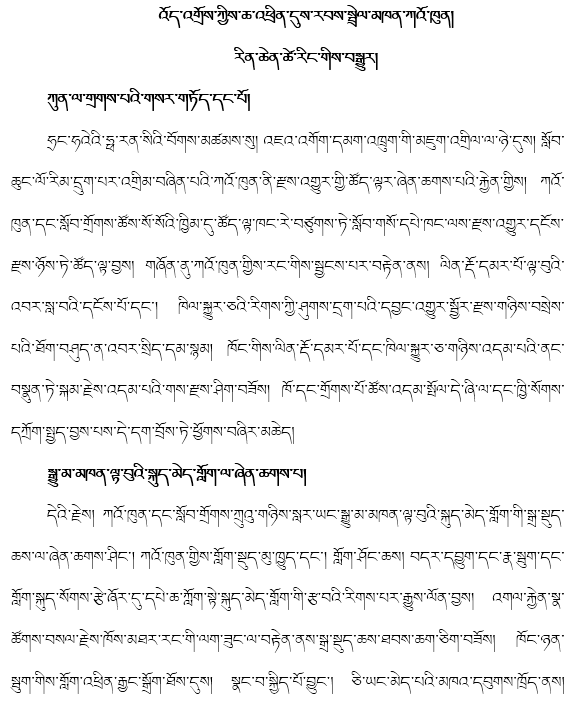 འོད་འགྲོས་ཀྱིས་ཆ་འཕྲིན་དུས་རབས་སྦྲེལ་མཁན་ཀའོ་ཁུན།
རིན་ཆེན་ཚེ་རིང་གིས་བསྒྱུར།
ཀུན་ལ་གྲགས་པའི་གསར་གཏོད་དང་པོ།
ཧྲང་ཧའེའི་ཧྥ་རན་སིའི་བོགས་མཚམས་སུ། འཇའ་འགོག་དམག་འཁྲུག་གི་མཇུག་འགྲིལ་ལ་ཉེ་དུས། སློབ་
ཆུང་ལོ་རིམ་དྲུག་པར་འགྲིམ་བཞིན་པའི་ཀའོ་ཁུན་ནི་རྫས་འགྱུར་གྱི་ཚོད་ལྟར་ཞེན་ཆགས་པའི་རྐྱེན་གྱིས། ཀའོ་
ཁུན་དང་སློབ་གྲོགས་ཚོས་སོ་སོའི་ཁྱིམ་དུ་ཚོད་ལྟ་ཁང་རེ་བཙུགས་ཏེ་སློབ་གསོ་དཔེ་ཁང་ལས་རྫས་འགྱུར་དངོས་
རྫས་ཉོས་ཏེ་ཚོད་ལྟ་བྱས། གཞོན་ནུ་ཀའོ་ཁུན་གྱིས་རང་གིས་སྦྱངས་པར་བརྟེན་ནས། ལིན་རྡོ་དམར་པོ་ལྟ་བུའི་
འབར་སླ་བའི་དངོས་པོ་དང་། ཁིལ་སྐྱུར་ཅའི་རིགས་ཀྱི་ཤུགས་དྲག་པའི་དབྱང་འགྱུར་སྦྱོར་རྫས་གཉིས་བསྲེས་
པའི་ཐོག་བཤུད་ན་འབར་སྲིད་དམ་སྙམ། ཁོང་གིས་ལིན་རྡོ་དམར་པོ་དང་ཁིལ་སྐྱུར་ཅ་གཉིས་འདམ་པའི་ནང་
བསྣུན་ཏེ་སྐམ་རྗེས་འདམ་པའི་གས་རྫས་ཤིག་བཟོས། ཁོ་དང་གྲོགས་པོ་ཚོས་འདམ་སྤོལ་དེ་ཞི་ལ་དང་ཁྱི་སོགས་
དཀྲོག་སྤྱད་བྱས་པས་དེ་དག་བྲོས་ཏེ་ཕྱོགས་བཞིར་མཆེད།
སྒྱུ་མ་མཁན་ལྟ་བུའི་སྐུད་མེད་གློག་ལ་ཞེན་ཆགས་པ།
དེའི་རྗེས། ཀའོ་ཁུན་དང་སློབ་གྲོགས་ཀྲུའུ་གཉིས་སླར་ཡང་སྒྱུ་མ་མཁན་ལྟ་བུའི་སྐུད་མེད་གློག་གི་སྒྲ་སྡུད་
ཆས་ལ་ཞེན་ཆགས་ཤིང་། ཀའོ་ཁུན་གྱིས་གློག་སྡུད་མུ་ཁྱུད་དང་། གློག་ཤོང་ཆས། བདར་དབྱུག་དང་རྣ་སྦུག་དང་
གློག་སྐུད་སོགས་རྩེ་ཞོར་དུ་དཔེ་ཆ་ཀློག་སྟེ་སྐུད་མེད་གློག་གི་རྩ་བའི་རིགས་པར་རྒྱུས་ལོན་བྱས། འགལ་རྐྱེན་སྣ་
ཚོགས་བསལ་རྗེས་ཁོས་མཐར་རང་གི་ལག་ཟུང་ལ་བརྟེན་ནས་སྒྲ་སྡུད་ཆས་ཐབས་ཆག་ཅིག་བཟོས། ཁོང་ཉན་
སྦུག་གིས་གློག་འཕྲིན་རྒྱང་སྒྲོག་ཐོས་དུས། སྣང་བ་སྐྱིད་པོ་བྱུང་། ཅི་ཡང་མེད་པའི་མཁའ་དབུགས་ཁྲོད་ནས།